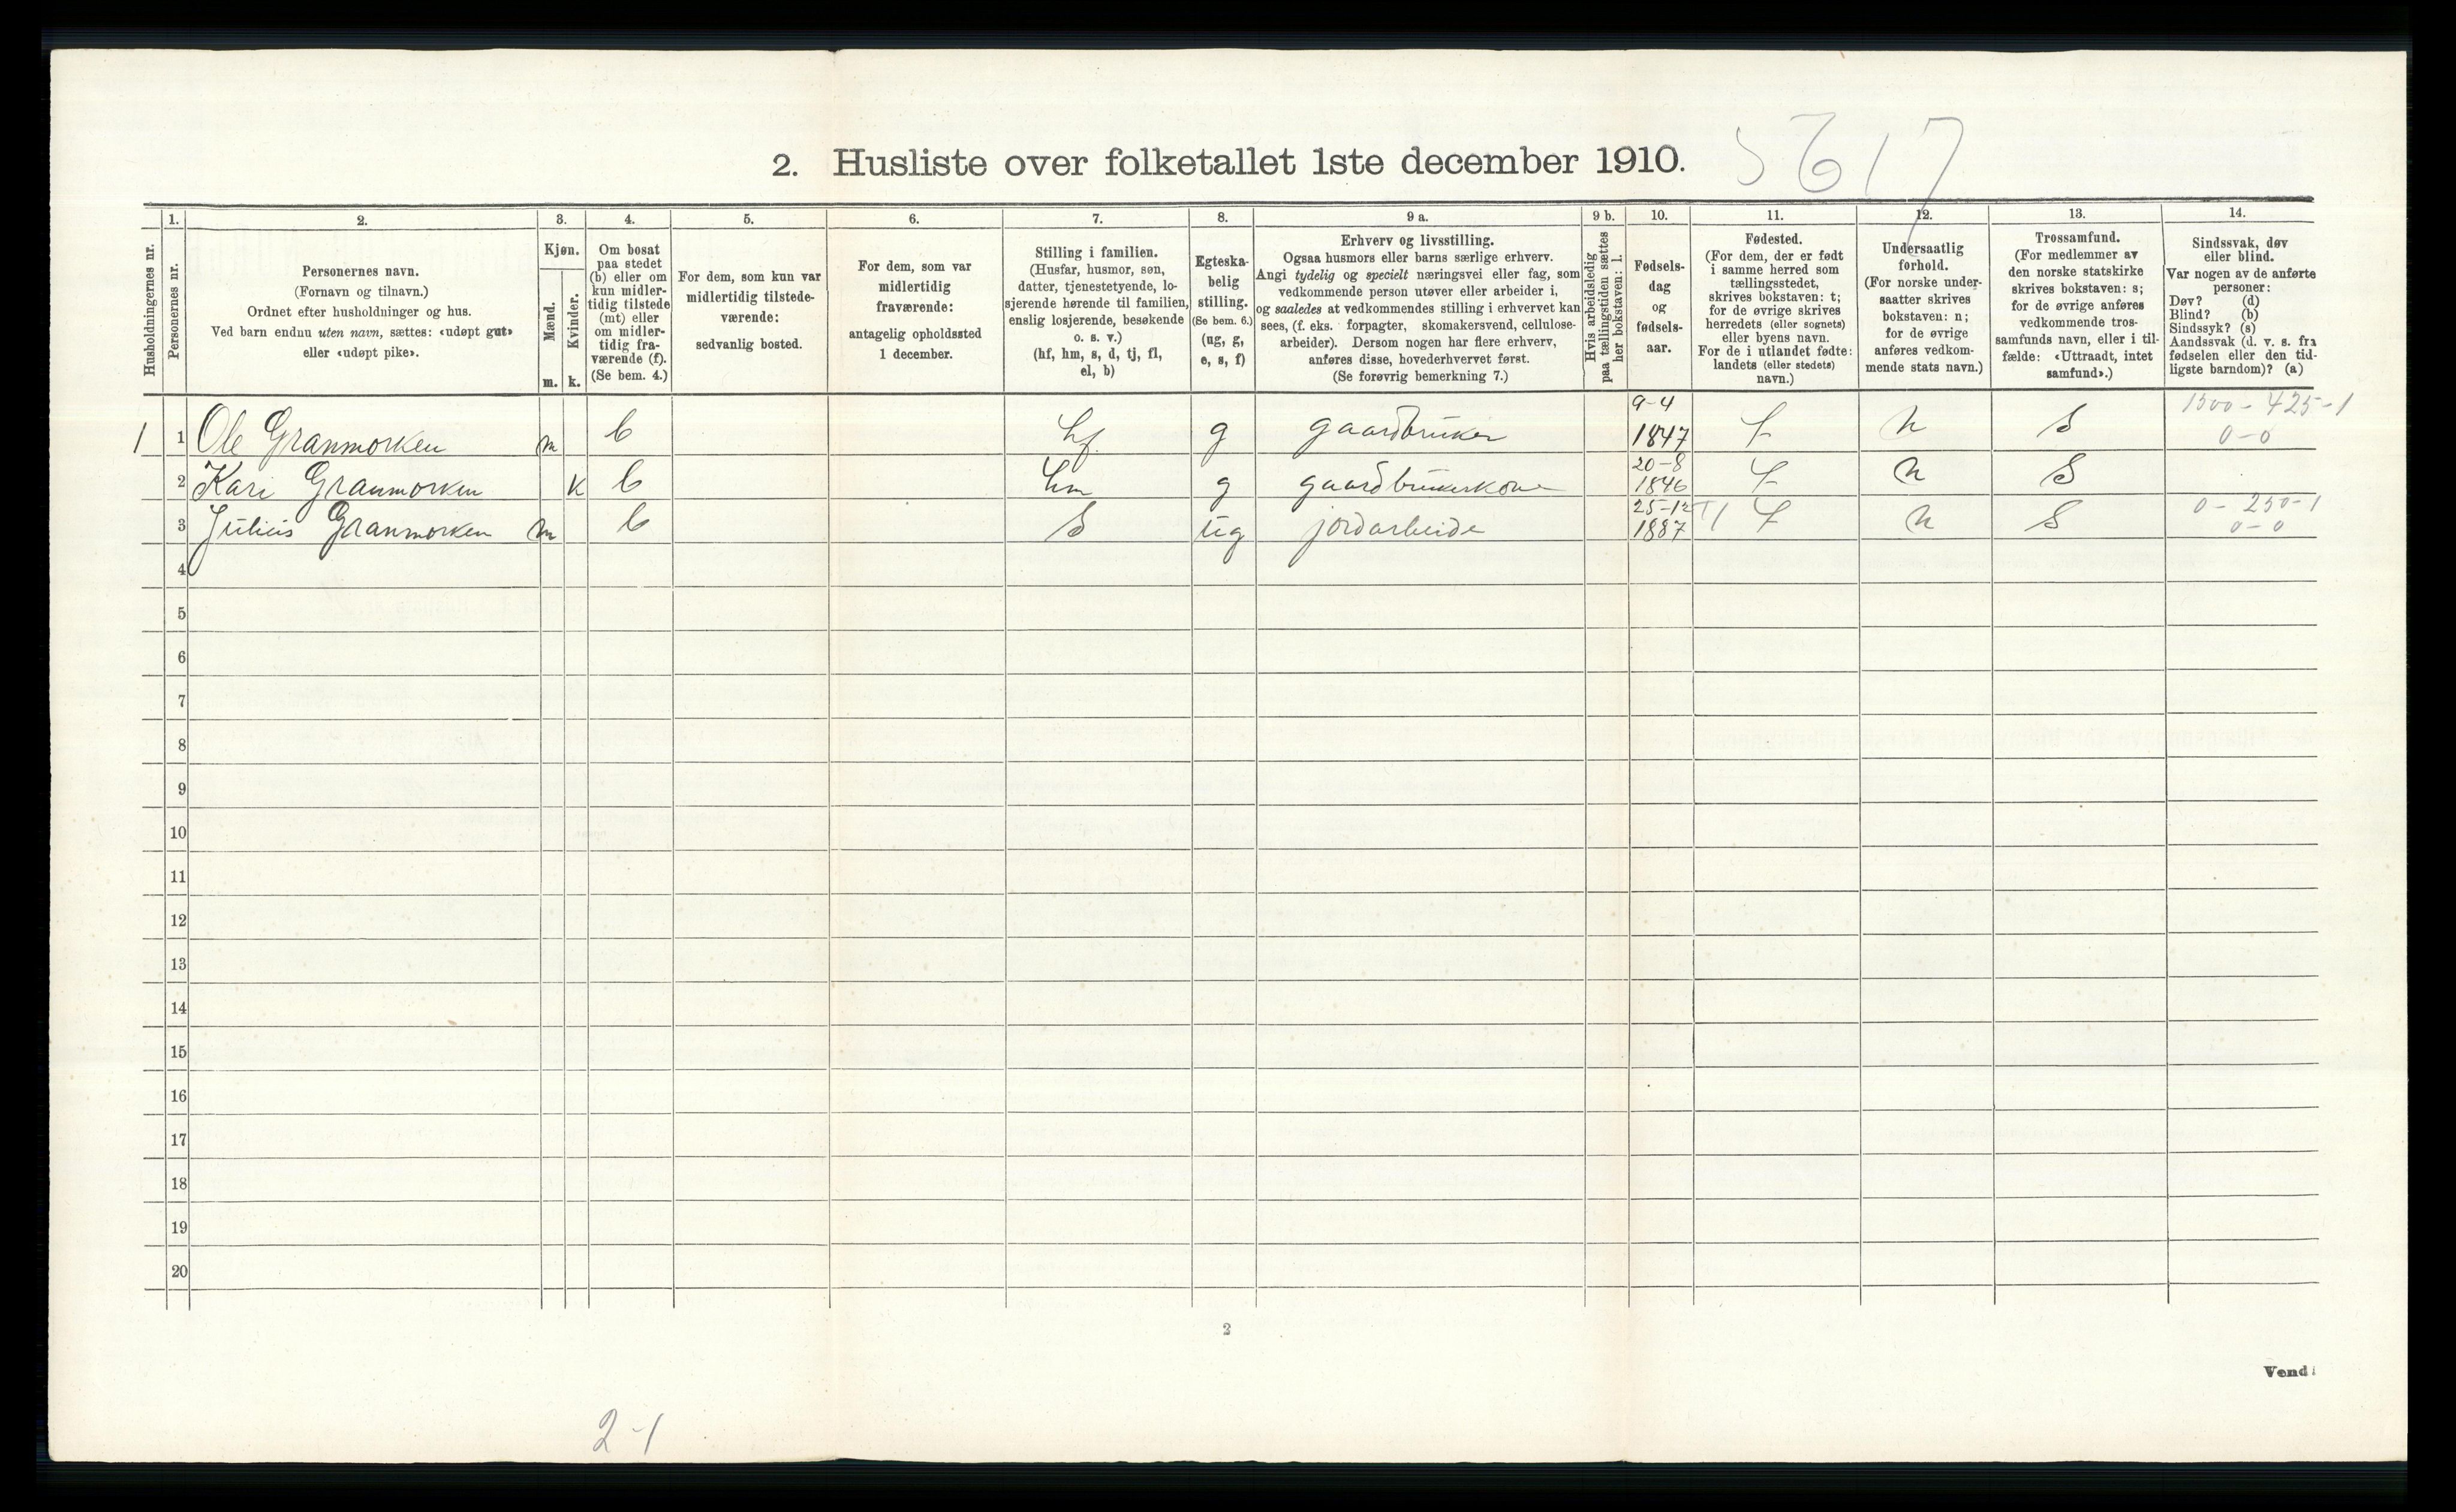 5617
2. Husliste over folketallet 1ste december 1910.
Husholdningernes nr.
1.
Personernes nr.
2.
Personernes navn.
(Fornavn og tilnavn.)
Ordnet efter husholdninger og hus.
Ved barn endnu uten navn, sættes: «udøpt gut»
eller «udøpt pike».
3.
Kjøn.
Mænd.
m.
Kvinder.
k.
4.
Om bosat
paa stedet
(b) eller om
kun midler-
tidig tilstede
(mt) eller
om midler-
tidig fra-
værende (f).
(Se bem. 4.)
5.
For dem, som kun var
midlertidig tilstede-
værende:
sedvanlig bosted.
6.
For dem, som var
midlertidig
fraværende:
antagelig opholdssted
1 december.
7.
Stilling i familien.
(Husfar, husmor, søn,
datter, tjenestetyende, lo-
sjerende hørende til familien,
enslig losjerende, besøkende
o. s. v.)
(hf, hm, s, d, tj, fl,
el, b)
8.
Egteska-
belig
stilling.
(Se bem. 6.)
(ug, g,
e, s, f)
9 a.
Erhverv og livsstilling.
Ogsaa husmors eller barns særlige erhverv.
Angi tydelig og specielt næringsvei eller fag, som
vedkommende person utøver eller arbeider i,
og saaledes at vedkommendes stilling i erhvervet kan
sees, (f. eks. forpagter, skomakersvend, cellulose-
arbeider). Dersom nogen har flere erhverv,
anføres disse, hovederhvervet først.
(Se forøvrig bemerkning 7.)
9 b.
Hvis arbeidsledig
paa tællingstiden sættes
her bokstaven: l.
10.
Fødsels-
dag
og
fødsels-
aar.
11.
Fødested.
(For dem, der er født
i samme herred som
tællingsstedet,
skrives bokstaven: t;
for de øvrige skrives
herredets (eller sognets)
eller byens navn.
For de i utlandet fødte:
landets (eller stedets)
navn.)
12.
Undersaatlig
forhold.
(For norske under-
saatter skrives
bokstaven: n;
for de øvrige
anføres vedkom-
mende stats navn.)
13.
Trossamfund.
(For medlemmer av
den norske statskirke
skrives bokstaven: s;
for de øvrige anføres
vedkommende tros-
samfunds navn, eller i til-
fælde: «Uttraadt, intet
samfund».)
14.
Sindssvak, døv
eller blind.
Var nogen av de anførte
personer:
Døv? (d)
Blind? (b)
Sindssyk? (s)
Aandssvak (d. v. s. fra
fødselen eller den tid-
ligste barndom)? (a)
1 1 Ole Granmorken m b hf. g gaardbruker 9-4 1847 t n S 1500-425-1 0-0
2 Kari Granmorken k b hm g gaardbrukerkone 20-8 1846 t n S
3 Julius Granmorken m b S ug jordarbeide 25-12 1887 t n S 0-250-1 0-0
4
5
6
7
8
9
10
11
12
13
14
15
16
17
18
19
20
2
Vend!
2-1